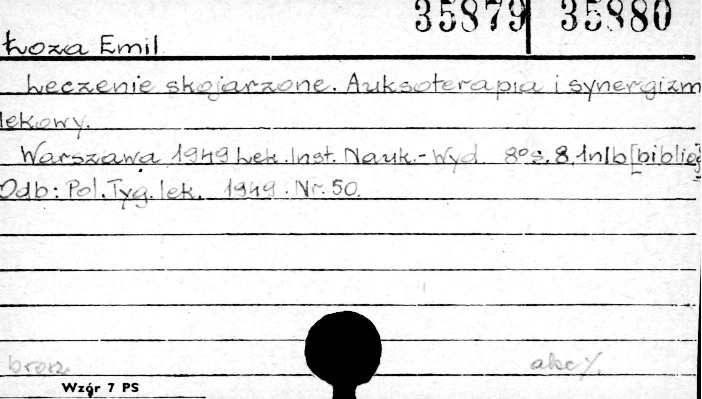 35879 35880
Łoza Emil
Leczenie skojarzone. Auksoterapia i synergizm
lekowy.
Warszawa 1949 Lek. Inst. Nauk.-Wyd. 8° s. 8, 1nlb [bibliog
Odb: Pol. Tyg. lek. 1949. Nr. 50.
brosz akc
Wzór 7 PS